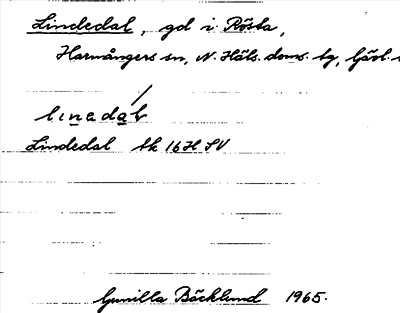 Lindedal, gd i Rösta,
Harmångers sn, N. Häls. doms. tg, Gävl.
linedal
Lindedal tk 16H SV
Gunilla Bäcklund 1965.